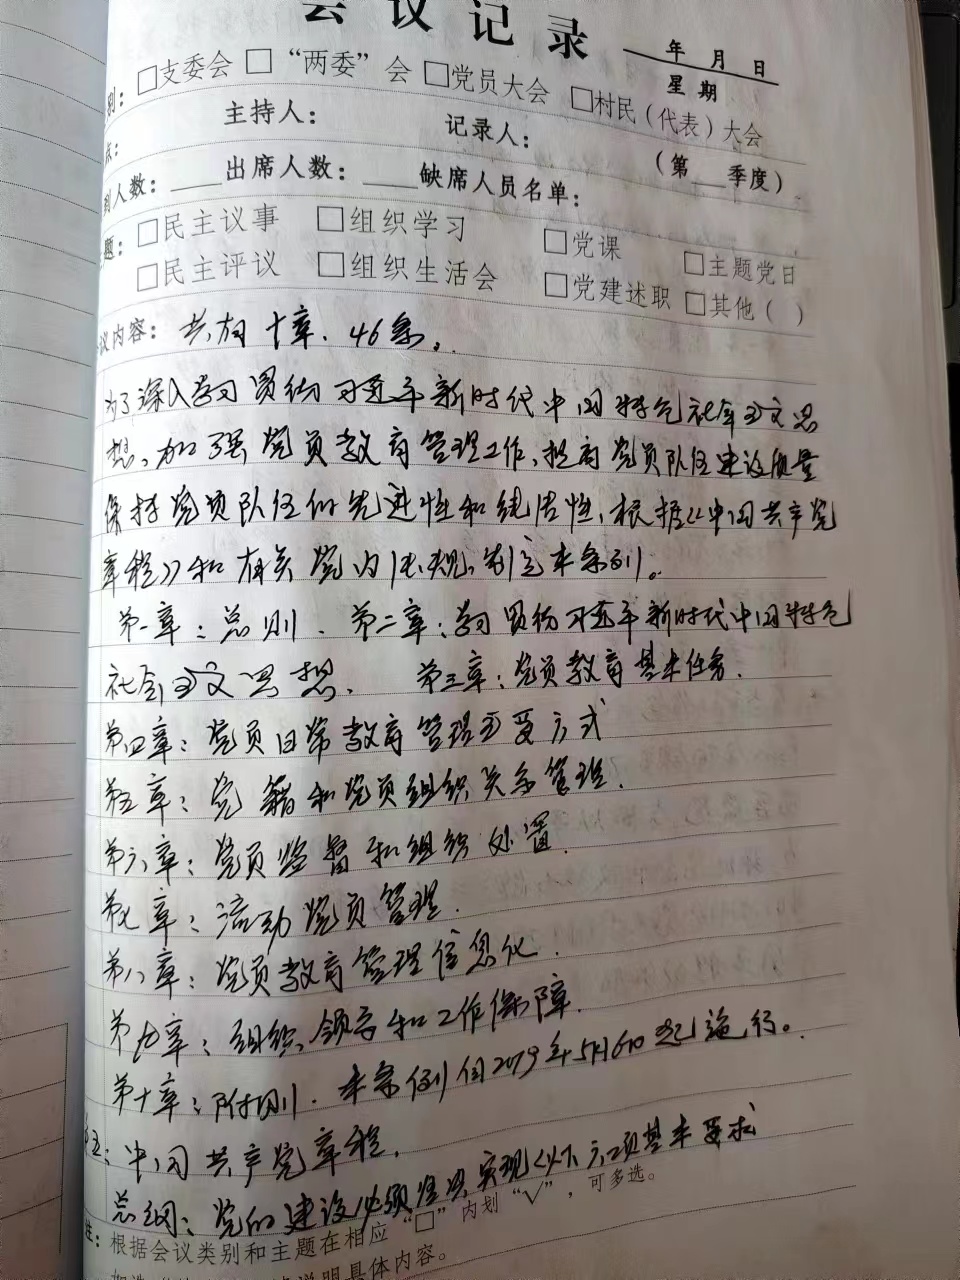 会议记录
年 月 日
星期
别：□支委会 □“两委”会 □党员大会 □村民（代表）大会
点： 主持人： 记录人： （第___季度）
到人数：____出席人数：____缺席人员名单：
题：□民主议事 □组织学习 □党课 □主题党日
□民主评议 □组织生活会 □党建述职 □其他（ ）
议内容：共有十章、46条。
为了深入学习贯彻习近平新时代中国特色社会主义思
想、加强党员教育管理工作、提高党员队伍建设质量
保持党员队伍的先进性和纯洁性、根据《中国共产党
章程》和有关党内法规、制定本条例。
第一章：总则. 第二章：学习贯彻习近平新时代中国特色
社会主义思想. 第三章：党员教育基本任务.
第四章：党员日常教育管理主要方式
第五章：党籍和党员组织关系管理.
第六章：党员监督和组织处置.
第七章：流动党员管理.
第八章：党员教育管理信息化.
第九章：组织领导和工作保障.
第十章：附则. 本条例自2019年5月6日起施行。
五：中国共产党章程.
总纲：党的建设必须坚决实现以下六项基本要求
注：根据会议类别和主题在相应“□”内划“√”，可多选。
说明具体内容。